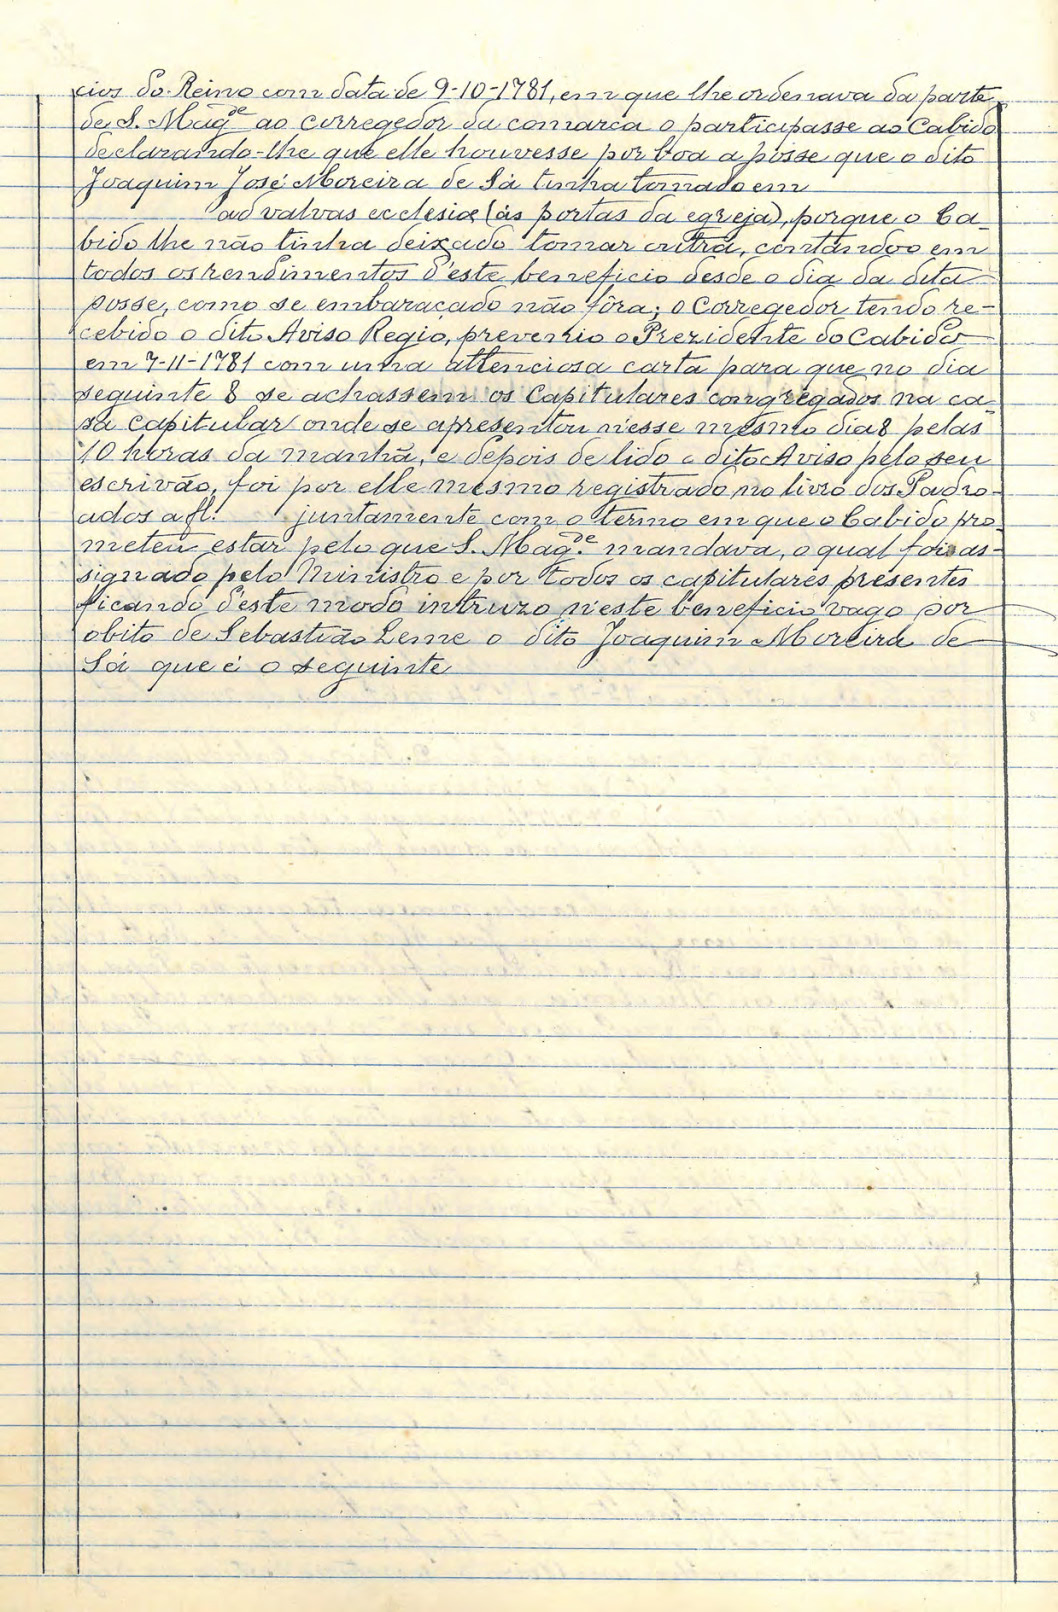 cios do Reino com data de 9-10-1781, em que lhe ordenava da parte
de S. Mag.de ao corregedor da comarca o participasse ao Cabido
declarando-lhe que elle houvesse por boa a posse que o dito
Joaquim José Moreira de Sá tinha tomado em
ad valvas ecclesiæ (ás portas da egreja), porque o Ca-
bido lhe não tinha deixado tomar outra, contando-o em
todos os rendimentos d'este beneficio desde o dia da dita
posse, como se embaraçado não fôra; o Corregedor tendo re-
cebido o dito Aviso Regio, prevenio o Prezidente do Cabido
em 7-11-1781 com uma attenciosa carta para que no dia
seguinte 8 se achassem os Capitulares congregados na ca-
sa capitular onde se apresentou n'esse mesmo dia 8 pelas
10 horas da manhã, e depois de lido o dito Aviso pelo seu
escrivão, foi por elle mesmo registrado no livro dos Padro-
ados a fl. juntamente com o termo em que o Cabido pro-
meteu estar pelo que S. Mag.de mandava, o qual foi as-
signado pelo Ministro e por todos os capitulares presentes
ficando d'este modo intruzo n'este beneficio vago por
obito de Sebastião Leme o dito Joaquim Moreira de
Sá que é o seguinte